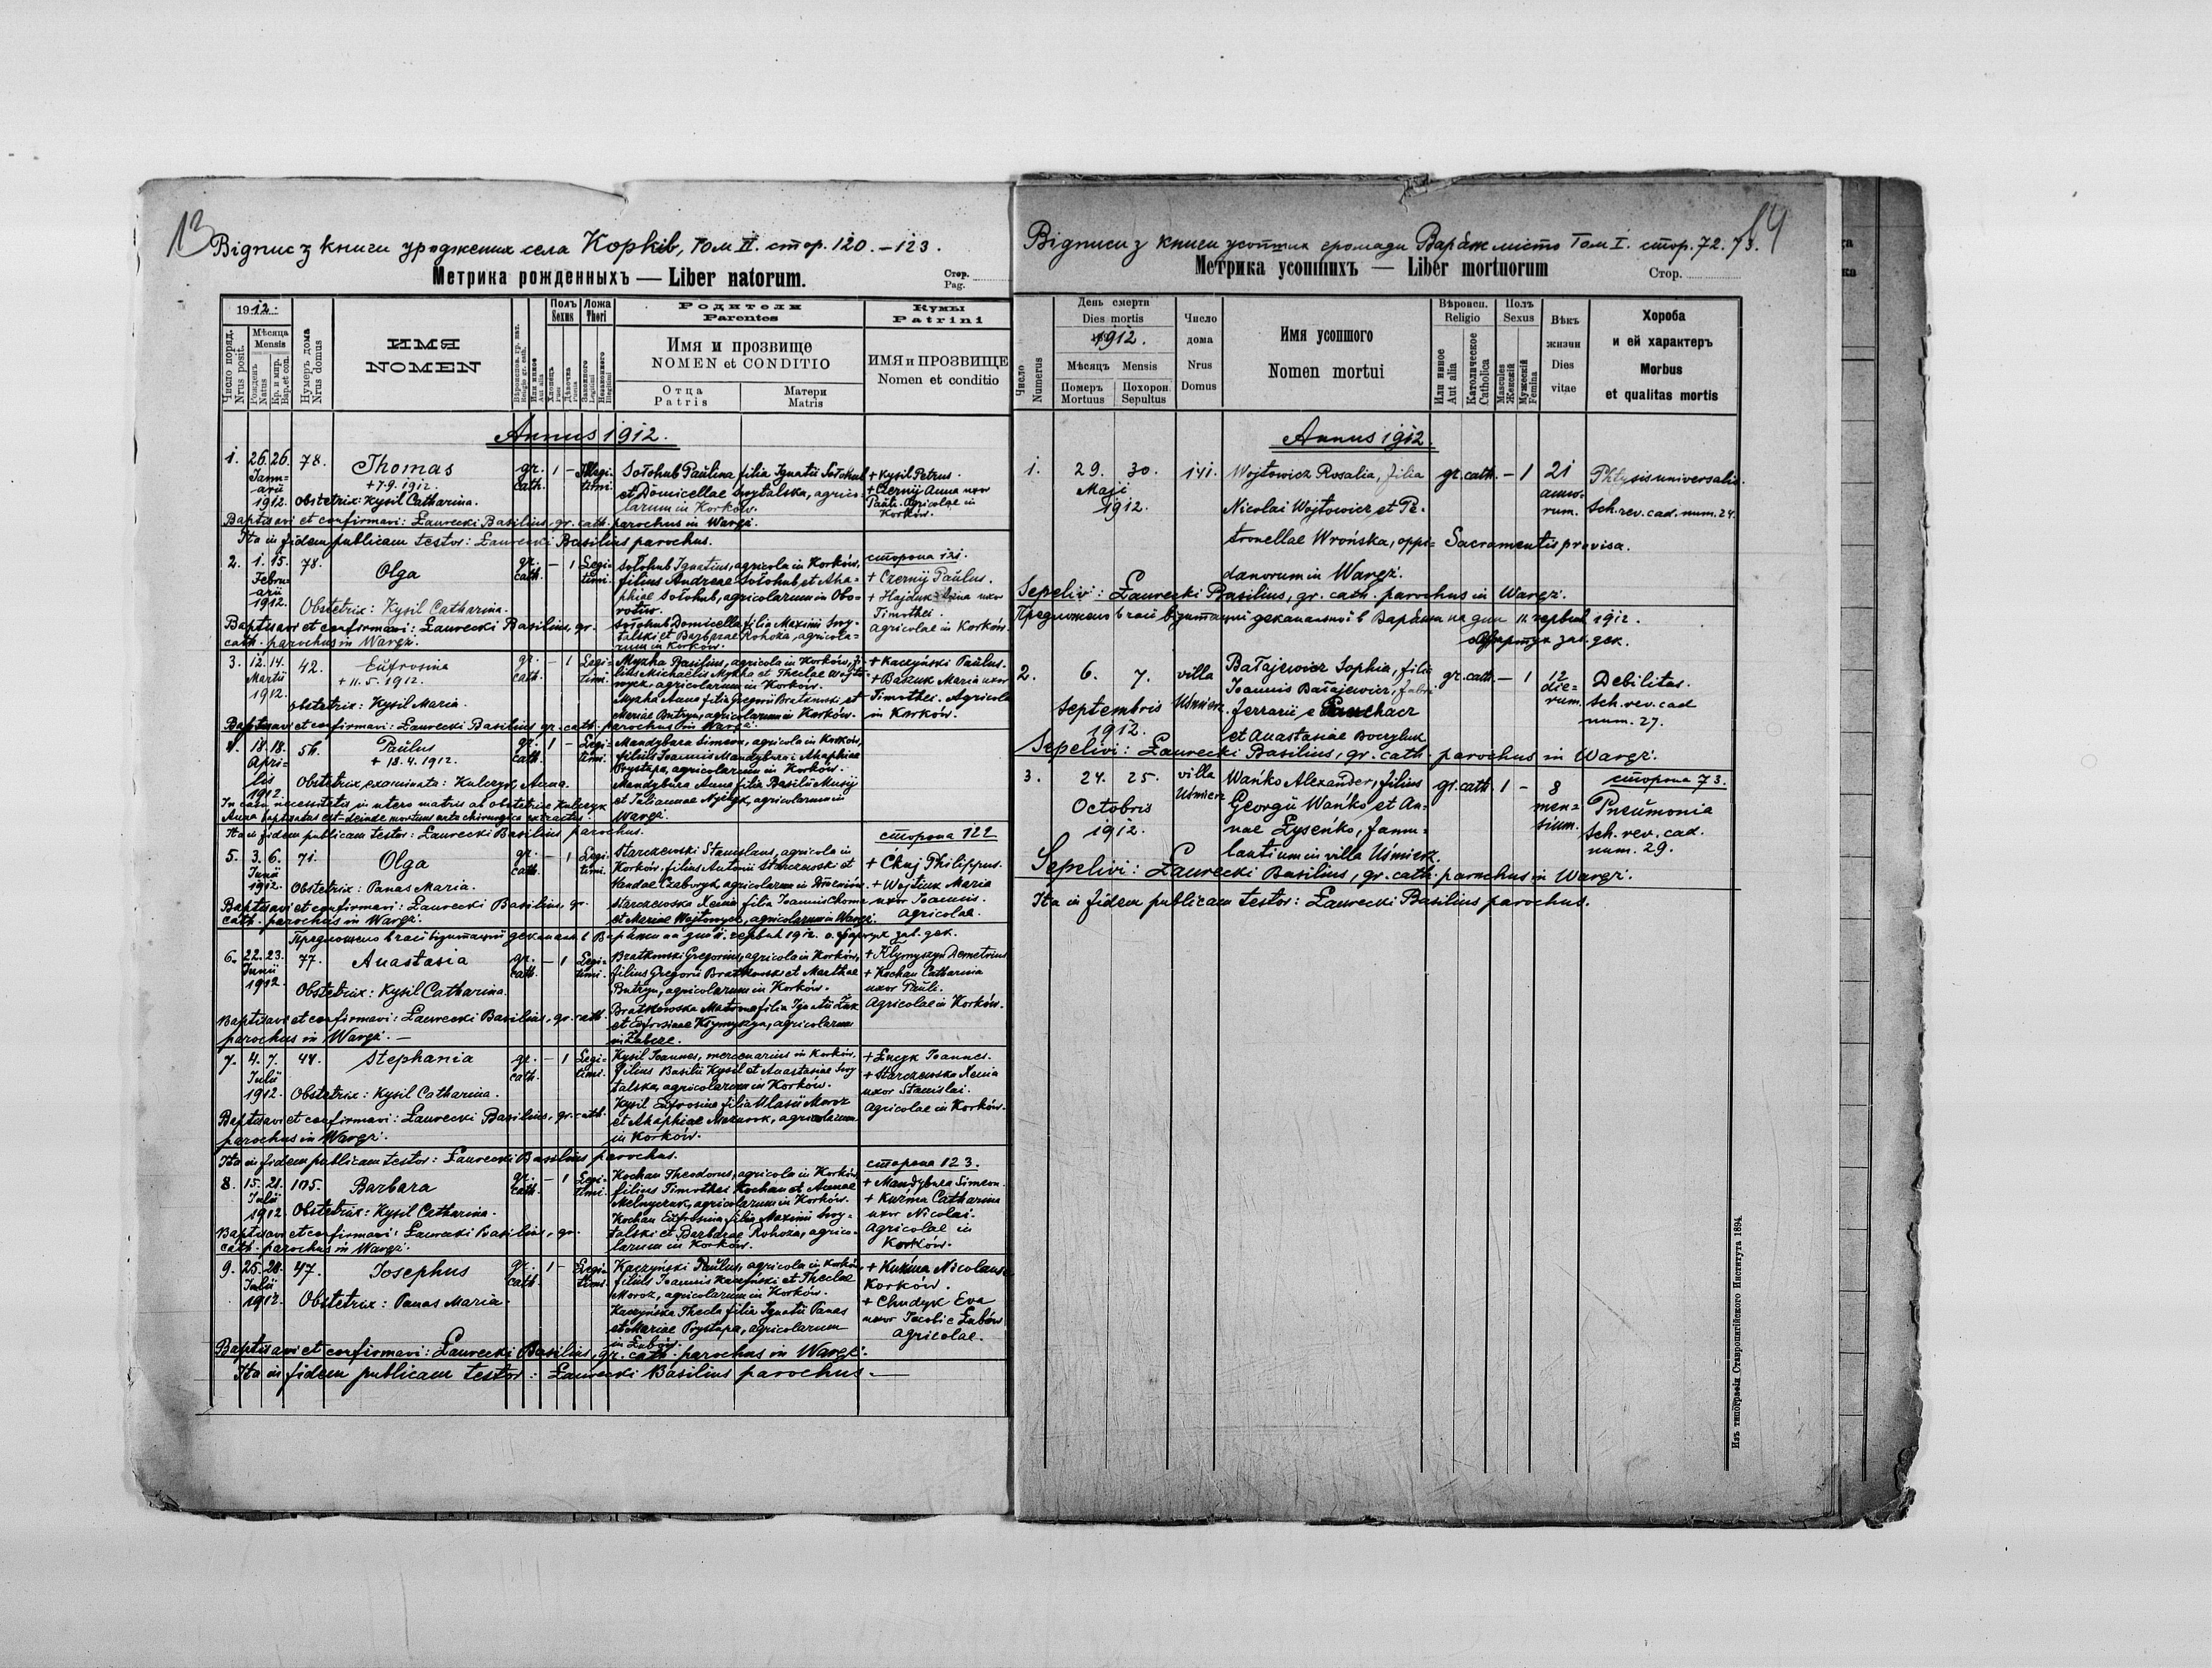 13
Відпис з книги уроджених села Корків, Том II. стор. 120.-123.
Метрика рожденныхъ — Liber natorum.
Стор.
Pag.
1912.
Число поряд.
Nrus posit.
Мѣсяца
Mensis
Рожденъ
Natus
Кр. и мир.
Bap. et con.
Нумеръ дома
Nrus domus
ИМЯ
NOMEN
Или инное
Aut alia
Полъ
Sexus
Ложа
Thori
Родители
Parentes
Имя и прозвище
NOMEN et CONDITIO
Отца
Patris
Матери
Matris
Кумы
Patrini
ИМЯ и ПРОЗВИЩЕ
Nomen et conditio
Annus 1912.
1. 26. 26. Januarii 1912. 78. Thomas + 7.9.1912. gr. cath. 1 – Illegitimi
Obstetrix: Kysil Catharina.
Sołohub Paulina filia Ignatii Sołohub
et Domicellae Swytalska, agricolarum in Korków.
+ Kysil Petrus.
+ Czernij Anna uxor
Pauli. Agricolae in
Korków.
Baptisavi et confirmavi: Ławrecki Basilius, gr. cath. parochus in Waręż.
Ita in fidem publicam testor: Ławrecki Basilius parochus.
2. 1. 15. Februarii 1912. 78. Olga gr. cath. – 1 Legitimi.
Obstetrix: Kysil Catharina.
Sołohub Ignatius, agricola in Korków,
filius Andreae Sołohub et Aha=
phiae Sołohub, agricolarum in
Sołohub Domicella filia Maximi Swy=
talski et Barbarae Rohoza, agricola=
rum in Korków.
сторона 121.
+ Czernij Paulus.
+ Hajduk uxor
Timothei.
agricolae in Korków.
Baptisavi et confirmavi: Ławrecki Basilius, gr.
cath. parochus in Waręż.
3. 12. 14. Martii 1912. 42. Eufrosina + 11.5.1912. gr. cath. – 1 Legitimi.
Obstetrix: Kysil Maria.
Myzha Basilius, agricola in Korków, fi=
lius Michaelis Myzha et Theclae
agricolarum in Korków.
Myzha Anna filia Gregorii Bratkowski et
Mariae Butryn, agricolarum in Korków.
+ Kaczyński Paulus.
+ Maria uxor
Timothei. Agricolae
in Korków.
Baptisavi et confirmavi: Ławrecki Basilius gr. cath. parochus in Waręż.
4. 18. 18. Aprilis 1912. Paulus + 18.4.1912. gr. cath. 1 – Legitimi.
Obstetrix examinata: Kulczyk Anna.
Mandybura Simeon, agricola in Korków,
filius Joannis Mandybura i Ahaphiae
Prystupa, agricolarum in Korków.
Mandybura Anna filia Basilii Musij
et Juliannae agricolarum in
Waręż.
In casu necessitatis in utero matris ab obstetrice Kulczyk
Anna baptisatus est – deinde mortuus arte chirurgica extractus.
Ita in fidem publicam testor: Ławrecki Basilius parochus.
5. 3. 6. Junii 1912. 71. Olga gr. cath. – 1 Legitimi.
Obstetrix: Panas Maria.
Starczewski Stanislaus, agricola in
Korków, filius Antonii Starczewski et
agricolarum in
Starczewska Xenia filia Joannis Choma
et Mariae Wojtowycz, agricolarum in Waręż.
сторона 122
+ Ćkaj Philippus.
+ Wojtiuk Maria
uxor Joannis.
Agricolae.
Baptisavi et confirmavi: Ławrecki Basilius, gr.
cath. parochus in Waręż.
Предложено в часї візитациї деканал. в Варяжи на дни 11. червня 1912. зав. дек.
6. 22. 23. Junii 1912. 77. Anastasia gr. cath. – 1 Legitimi.
Obstetrix: Kysil Catharina.
Bratkowski Gregorius, agricola in Korków,
filius Gregorii Bratkowski et Marthae
Butryn, agricolarum in Korków.
Bratkowska Matrona filia Ignatii Żuk
et Eufrosinae Klymyszyn, agricolarum
+ Klymyszyn Demetrius
+ Kochan Catharina
uxor Pauli.
Agricolae in Korków.
Baptisavi et confirmavi: Ławrecki Basilius, gr. cath.
parochus in Waręż. —
7. 4. 7. Julii 1912. 44. Stephania gr. cath. – 1 Legitimi.
Obstetrix: Kysil Catharina.
Kysil Joannes, mercenarius in Korków,
filius Basilii Kysil et Anastasiae Swy
talska, agricolarum in Korków.
Kysil Eufrosina filia Wlasii Moroz
et Ahaphiae agricolarum
in Korków.
+ Łucyk Joannes.
+ Starczewska Xenia
uxor Stanislai.
Agricolae in Korków.
Baptisavi et confirmavi: Ławrecki Basilius, gr. cath.
parochus in Waręż.
Ita in fidem publicam testor: Ławrecki Basilius parochus.
8. 15. 21. Julii 1912. 105. Barbara gr. cath. – 1 Legitimi.
Obstetrix: Kysil Catharina.
Kochan Theodorus, agricola in Korków
filius Timothei Kochan et Annae
Melnyczuk, agricolarum in Korków.
Kochan Eufrosina filia Maximi Swy=
talski et Barbarae Rohoza, agrico=
larum in Korków.
сторона 123.
+ Mandybura Simeon.
+ Kuźma Catharina
uxor Nicolai.
Agricolae in
Korków.
Baptisavi et confirmavi: Ławrecki Basilius, gr.
cath. parochus in Waręż.
9. 25. 28. Julii 1912. 47. Josephus gr. cath. 1 – Legitimi.
Obstetrix: Panas Maria.
Kaczyński Paulus, agricola in Korków,
filius Joannis Kaczyński et Theclae
Moroz, agricolarum in Korków.
Kaczyńska Thecla filia Ignatii Panas
et Mariae Prystupa, agricolarum
in Łubów.
+ Kuźma Nicolaus
Korków.
+ Chudyk Eva
uxor Jacobi e Łubów
Agricolae.
Baptisavi et confirmavi: Ławrecki Basilius, gr. cath. parochus in Waręż.
Ita in fidem publicam testor: Ławrecki Basilius parochus. —
14
Відписи з книги усопших громади Варяж місто Том I. стор. 72. 73.
Метрика усопшихъ — Liber mortuorum
Стор.
Число
Numerus
День смерти
Dies mortis
1912.
Мѣсяцъ Mensis
Померъ
Mortuus
Похорон.
Sepultus
Число
дома
Nrus
Domus
Имя усопшого
Nomen mortui
Вѣроисп.
Religio
Или инное
Aut alia
Католическое
Catholica
Полъ
Sexus
Mascules
Женскій
Мужескій
Femina
Вѣкъ
жизни
Dies
vitae
Хороба
и ей характеръ
Morbus
et qualitas mortis
Annus 1912.
1. 29. 30. Maji 1912. 141. Wojtowicz Rosalia, filia gr. cath. – 1 21 annorum. Phtysis universalis.
Nicolai Wojtowicz et Pe= Sch. rev. cad. num. 24.
tronellae Wrońska, oppi= Sacramentis provisa.
danorum in Waręż.
Sepelivi: Ławrecki Basilius, gr. cath. parochus in Waręż.
Предложено в часї візитациї деканальної в Варяжи на дни 11. червня 1912.
зав. дек.
2. 6. 7. Septembris 1912. villa Uśmierz. Bałajewicz Sophia, filia gr. cath. – 1 12 dierum. Debilitas.
Joannis Bałajewicz, fabri Sch. rev. cad
ferrarii e num. 27.
et Anastasiae
Sepelivi: Ławrecki Basilius, gr. cath. parochus in Waręż.
3. 24. 25. Octobris 1912. villa Uśmierz Wańko Alexander, filius gr. cath. 1 – 8 mensium. сторона 73.
Georgii Wańko et An= Pneumonia
nae Łyseńko, famu= Sch. rev. cad.
lantium in villa Uśmierz. num. 29.
Sepelivi: Ławrecki Basilius, gr. cath. parochus in Waręż.
Ita in fidem publicam testor: Ławrecki Basilius parochus.
Изъ типографіи Ставропигійского Института 1894.